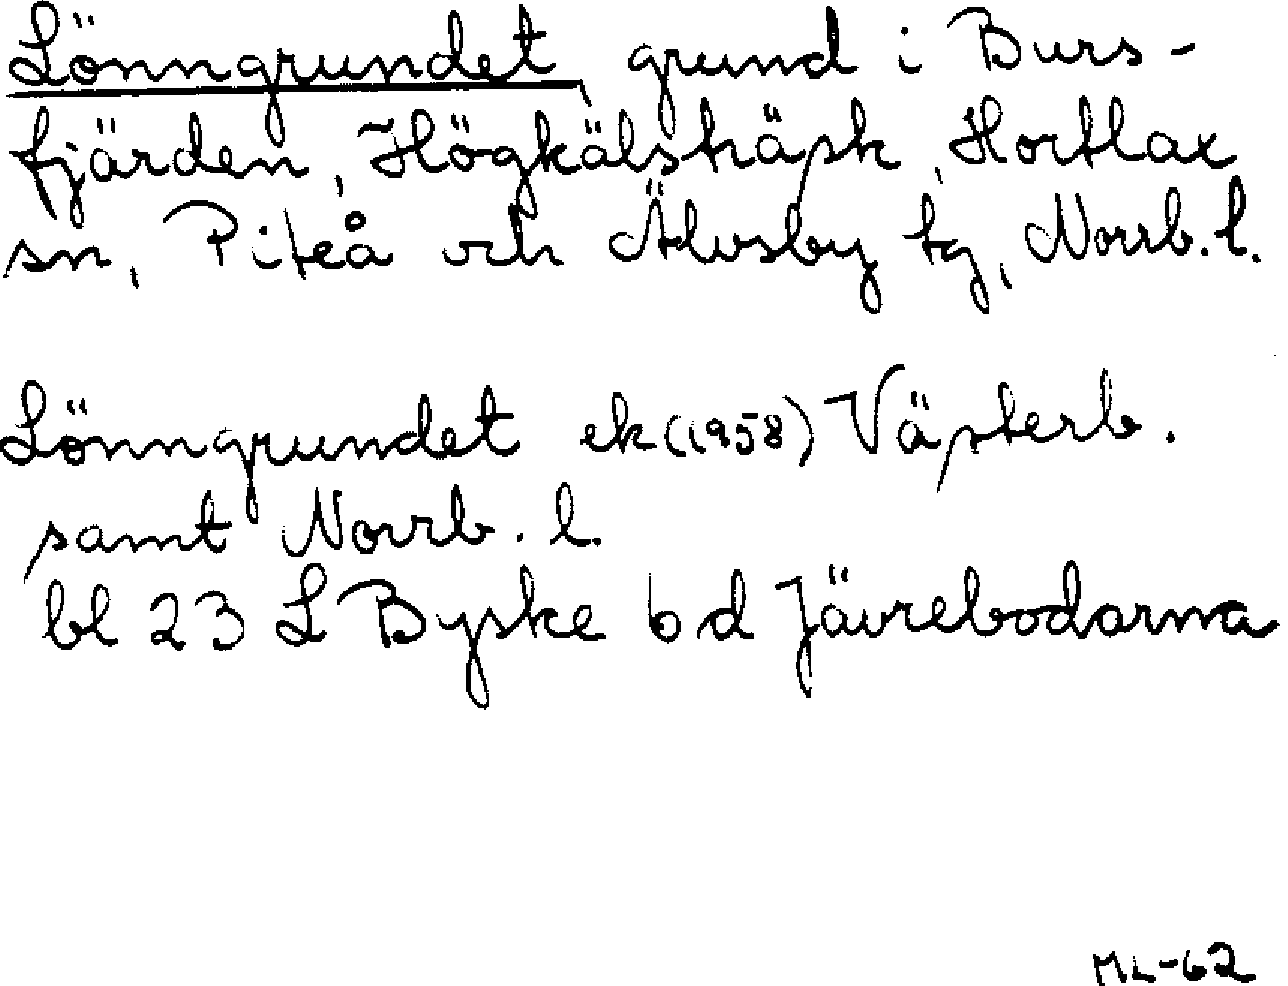 Lönngrundet, grund i Burs-
fjärden, Högkälskäpk, Hortlax
sn, Piteå och Älvsby tg, Norrb. l.
Lönngrundet ek (1958) Västerb.
samt Norrb. l.
bl 23 L Byske 6 d Jävrebodarna
ML-62